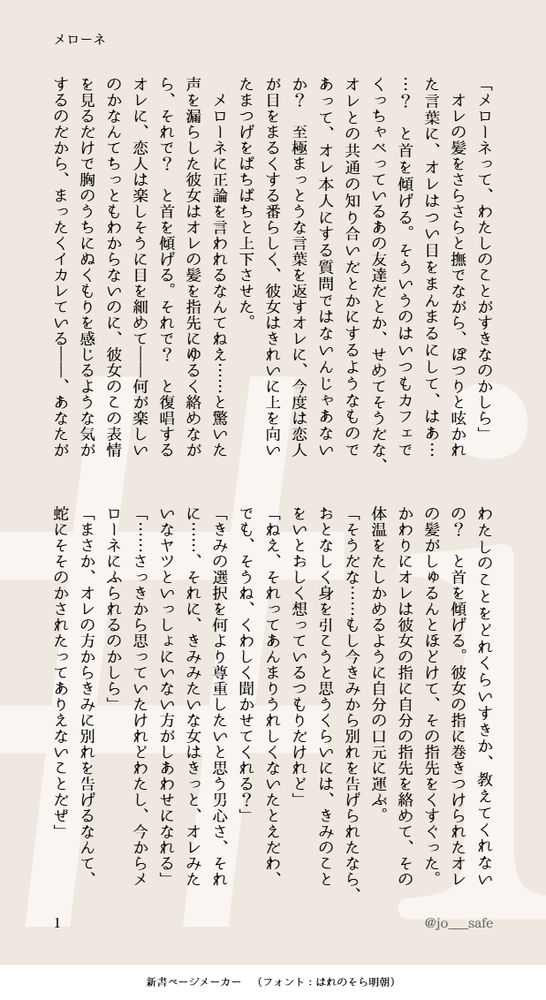 メローネ
「メローネって、わたしのことがすきなのかしら」
　オレの髪をさらさらと撫でながら、ぽつりと呟かれ
た言葉に、オレはつい目をまんまるにして、はあ…
…？　と首を傾げる。そういうのはいつもカフェで
くっちゃべっているあの友達だとか、せめてそうだな、
オレとの共通の知り合いだとかにするようなもので
あって、オレ本人にする質問ではないんじゃあない
か？　至極まっとうな言葉を返すオレに、今度は恋人
が目をまるくする番らしく、彼女はきれいに上を向い
たまつげをぱちぱちと上下させた。
　メローネに正論を言われるなんてねえ……と驚いた
声を漏らした彼女はオレの髪を指先にゆるく絡めなが
ら、それで？　と首を傾げる。それで？　と復唱する
オレに、恋人は楽しそうに目を細めて――何が楽しい
のかなんてちっともわからないのに、彼女のこの表情
を見るだけで胸のうちにぬくもりを感じるような気が
するのだから、まったくイカレている――、あなたが
わたしのことをどれくらいすきか、教えてくれない
の？　と首を傾げる。彼女の指に巻きつけられたオレ
の髪がしゅるんとほどけて、その指先をくすぐった。
かわりにオレは彼女の指に自分の指先を絡めて、その
体温をたしかめるように自分の口元に運ぶ。
「そうだな……もし今きみから別れを告げられたなら、
おとなしく身を引こうと思うくらいには、きみのこと
をいとおしく想っているつもりだけれど」
「ねえ、それってあんまりうれしくないたとえだわ、
でも、そうね、くわしく聞かせてくれる？」
「きみの選択を何より尊重したいと思う男心さ、それ
に……、それに、きみみたいな女はきっと、オレみた
いなヤツといっしょにいない方がしあわせになれる」
「……さっきから思っていたけれどわたし、今からメ
ローネにふられるのかしら」
「まさか、オレの方からきみに別れを告げるなんて、
蛇にそそのかされたってありえないことだぜ」
1
@jo___safe
新書ページメーカー　（フォント：はれのそら明朝）